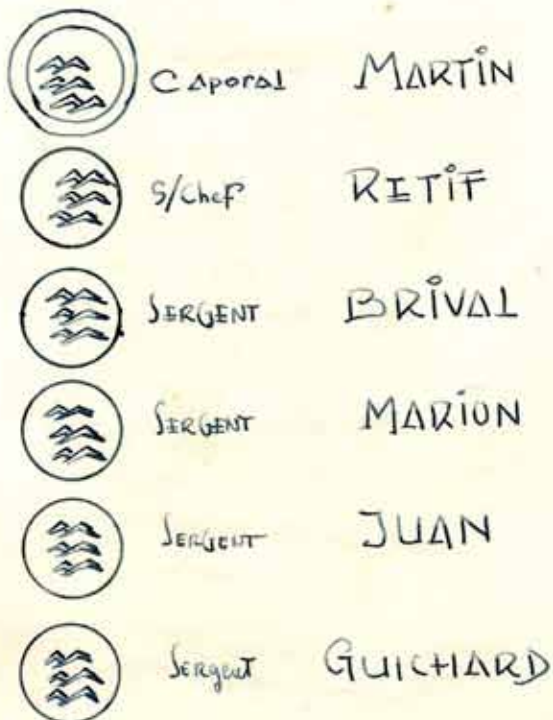 Caporal MARTIN
S/Chef RETIF
SERGENT BRIVAL
SERGENT MARION
SERGENT JUAN
Sergent GUICHARD